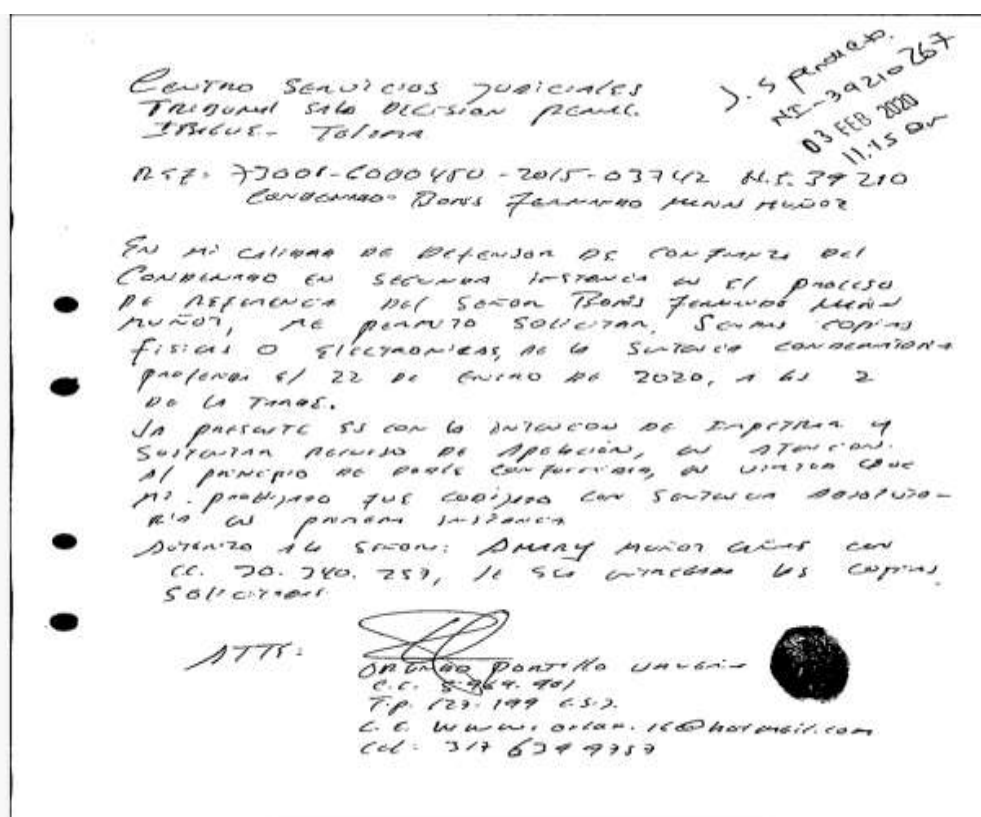 CENTRO SERVICIOS JUDICIALES
TRIBUNAL SALA DECISION PENAL
IBAGUE - TOLIMA
J. S
NI-39210 267
03 FEB 2020
11:15 am
REF: 73001-6000450-2015-03742 N.I. 39210
CONDENADO: BORIS FERNANDO MUÑOZ
EN MI CALIDAD DE DEFENSOR DE CONFIANZA DEL
CONDENADO EN SEGUNDA INSTANCIA EN EL PROCESO
DE REFERENCIA DEL SEÑOR BORIS FERNANDO
MUÑOZ, ME PERMITO SOLICITAR, COPIAS
FISICAS O ELECTRONICAS, DE LA SENTENCIA CONDENATORIA
PROFERIDA EL 22 DE ENERO DE 2020, A LAS 2
DE LA TARDE.
LA PRESENTE ES CON LA INTENCION DE IMPETRAR Y
SUSTENTAR RECURSO DE APELACIÓN, EN ATENCION
AL PRINCIPIO DE DOBLE CONFORMIDAD, EN VIRTUD QUE
MI PROHIJADO FUE COBIJADO CON SENTENCIA ABSOLUTO-
RIA EN PRIMERA INSTANCIA
AUTORIZO A LA SEÑORA: MUÑOZ CON
CC. LE SEA ENTREGADA LAS COPIAS
SOLICITADAS
ATTE:
PORTILLO
C.C. 5.969.901
T.P. 127.199 C.S.J.
317 639 9757